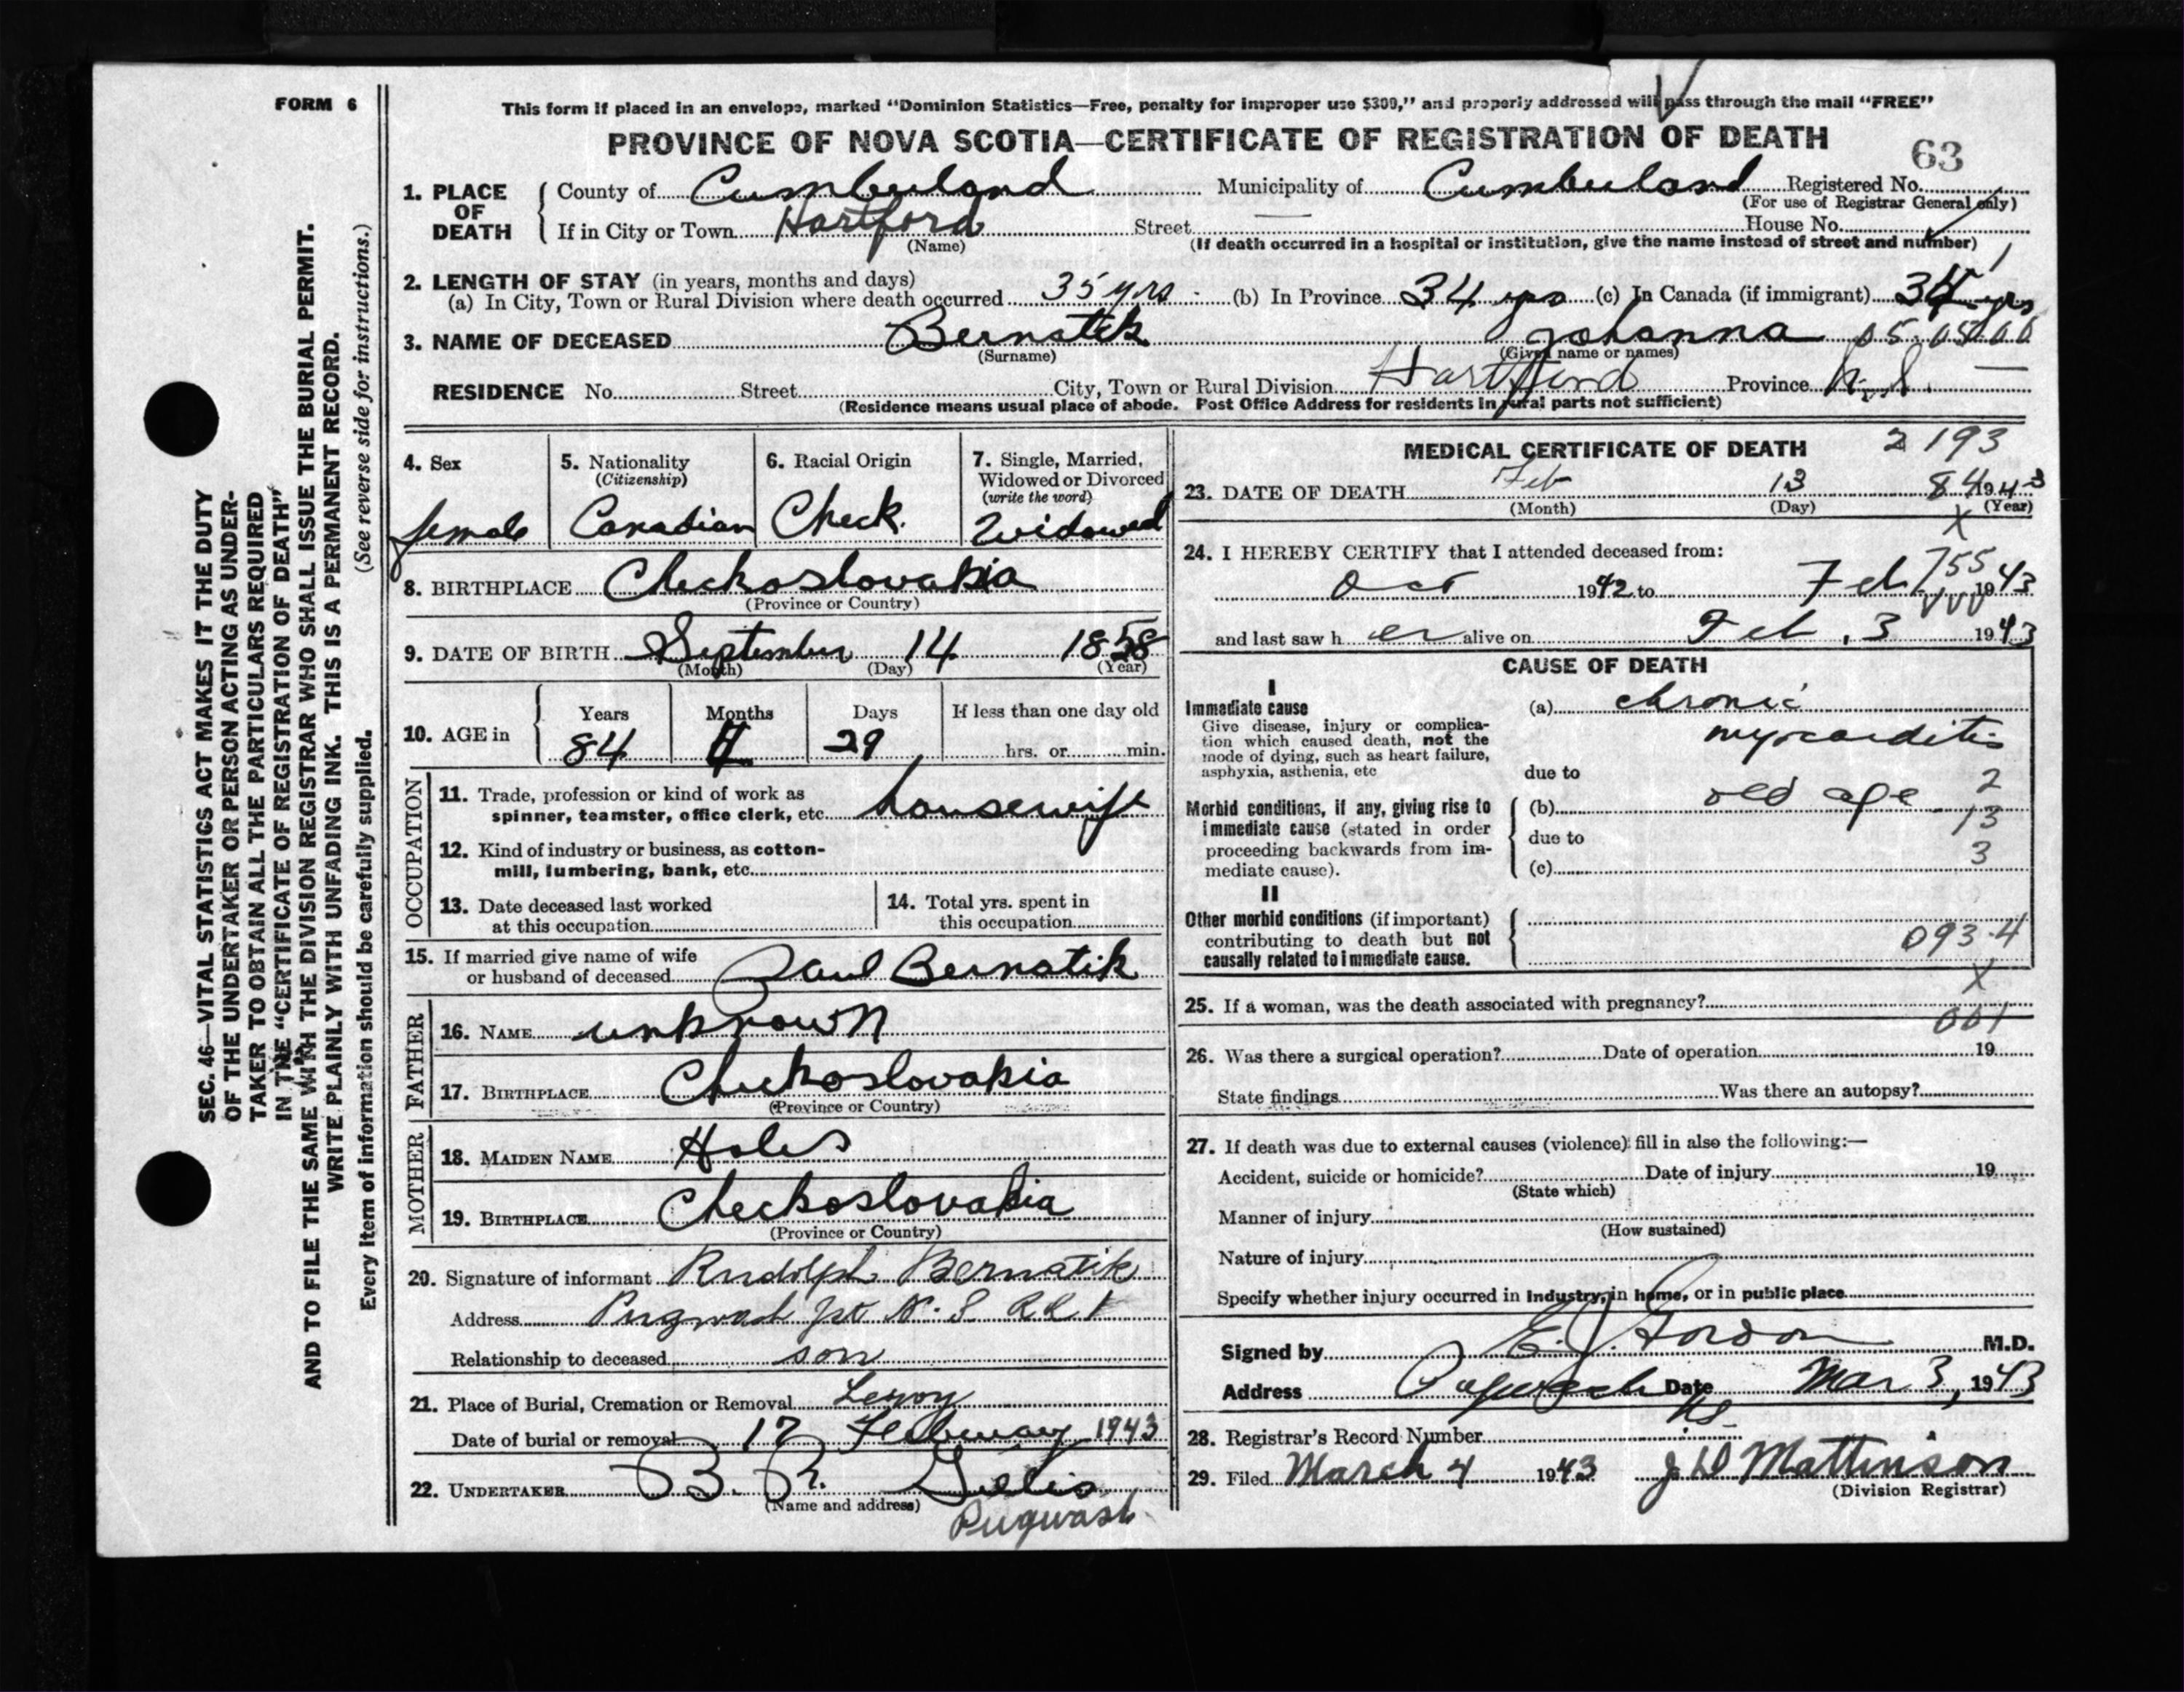 FORM 6
This form if placed in an envelope, marked "Dominion Statistics—Free, penalty for improper use $300," and properly addressed will pass through the mail "FREE"
PROVINCE OF NOVA SCOTIA—CERTIFICATE OF REGISTRATION OF DEATH
63
1. PLACE OF DEATH County of Cumberland Municipality of Cumberland Registered No.
(For use of Registrar General only)
If in City or Town Hartford Street House No.
(Name) (If death occurred in a hospital or institution, give the name instead of street and number)
2. LENGTH OF STAY (in years, months and days)
(a) In City, Town or Rural Division where death occurred 35 yrs. (b) In Province 34 yrs (c) In Canada (if immigrant) 34 yrs
3. NAME OF DECEASED Bernatik Johanna 05.0500
(Surname) (Given name or names)
RESIDENCE No. Street City, Town or Rural Division Hartford Province N.S. —
(Residence means usual place of abode. Post Office Address for residents in rural parts not sufficient)
4. Sex
female
5. Nationality
(Citizenship)
Canadian
6. Racial Origin
Check.
7. Single, Married,
Widowed or Divorced
(write the word)
Widowed
8. BIRTHPLACE Checkoslovakia
(Province or Country)
9. DATE OF BIRTH September 14 1858
(Month) (Day) (Year)
10. AGE in Years Months Days If less than one day old
84 29 hrs. or min.
OCCUPATION
11. Trade, profession or kind of work as
spinner, teamster, office clerk, etc. housewife
12. Kind of industry or business, as cotton-
mill, lumbering, bank, etc.
13. Date deceased last worked
at this occupation
14. Total yrs. spent in
this occupation
15. If married give name of wife
or husband of deceased Paul Bernatik
FATHER
16. NAME unknown
17. BIRTHPLACE Checkoslovakia
(Province or Country)
MOTHER
18. MAIDEN NAME Holes
19. BIRTHPLACE Checkoslovakia
(Province or Country)
20. Signature of informant Rudolph Bernatik
Address Pugwash Jct N.S. R.R 1
Relationship to deceased son
21. Place of Burial, Cremation or Removal Leroy
Date of burial or removal 17 February 1943
22. UNDERTAKER B. R.
(Name and address)
Pugwash
MEDICAL CERTIFICATE OF DEATH 2 193
23. DATE OF DEATH Feb 13 84 1943
(Month) (Day) (Year)
X
24. I HEREBY CERTIFY that I attended deceased from:
755
Oct 1942 to Feb 1943
and last saw her alive on Feb. 3 1943
CAUSE OF DEATH
I
Immediate cause
Give disease, injury or complica-
tion which caused death, not the
mode of dying, such as heart failure,
asphyxia, asthenia, etc
(a) chronic
myocarditis
due to
2
Morbid conditions, if any, giving rise to
immediate cause (stated in order
proceeding backwards from im-
mediate cause).
(b) old age
13
due to
3
(c)
II
Other morbid conditions (if important)
contributing to death but not
causally related to immediate cause.
093.4
X
25. If a woman, was the death associated with pregnancy?
001
26. Was there a surgical operation? Date of operation 19
State findings Was there an autopsy?
27. If death was due to external causes (violence) fill in also the following:—
Accident, suicide or homicide? Date of injury 19
(State which)
Manner of injury
(How sustained)
Nature of injury
Specify whether injury occurred in Industry, in home, or in public place
Signed by E. J. Gordon M.D.
Address Pugwash Date Mar 3, 1943
NS
28. Registrar's Record Number
29. Filed March 4 1943 J D Mattinson
(Division Registrar)
SEC. 46—VITAL STATISTICS ACT MAKES IT THE DUTY
OF THE UNDERTAKER OR PERSON ACTING AS UNDER-
TAKER TO OBTAIN ALL THE PARTICULARS REQUIRED
IN THE "CERTIFICATE OF REGISTRATION OF DEATH"
AND TO FILE THE SAME WITH THE DIVISION REGISTRAR WHO SHALL ISSUE THE BURIAL PERMIT.
WRITE PLAINLY WITH UNFADING INK. THIS IS A PERMANENT RECORD.
Every item of information should be carefully supplied. (See reverse side for instructions.)